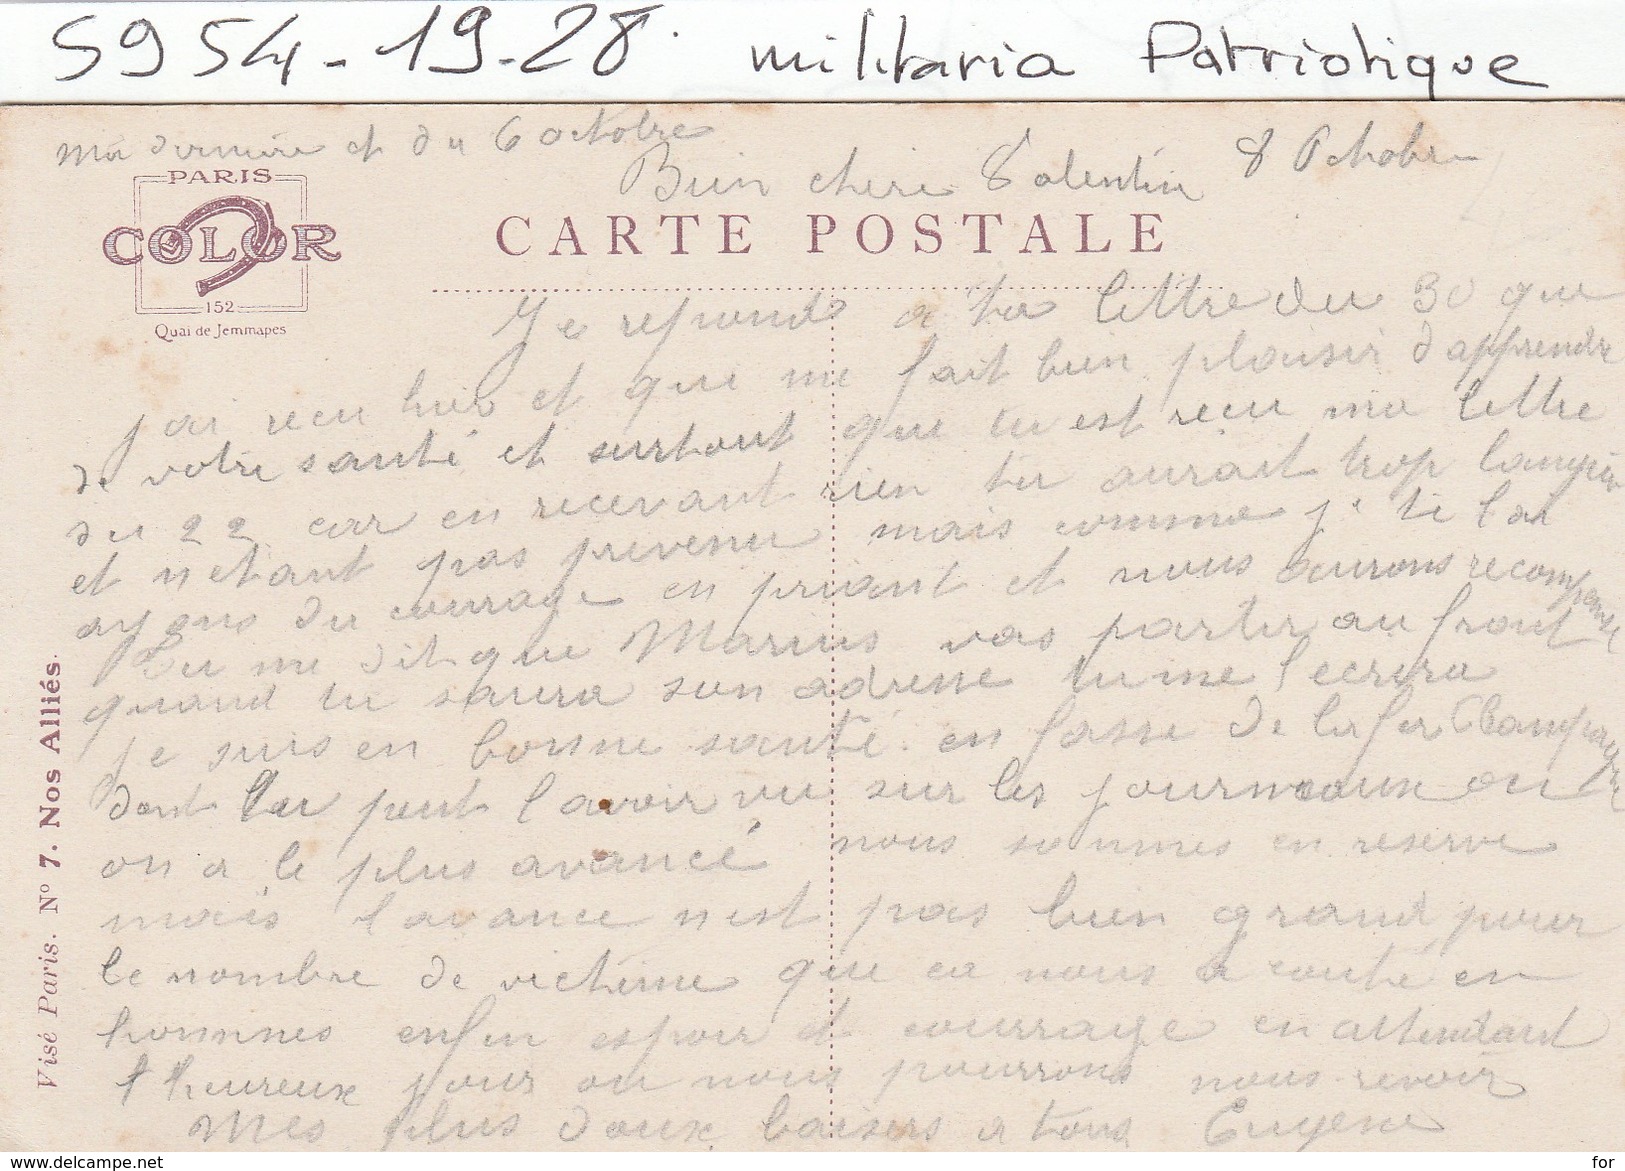 5954-19-28. militaria Patriotique
Ma derniere et du 6 octobre
8 Octobre
Bien chere Valentine
PARIS
COLOR
152
Quai de Jemmapes
CARTE POSTALE
Je reponds a ta lettre du 30 que
j ai recu hier et que me fait bien plaisir d apprendre
de votre santé et surtout que tu est reçu ma lettre
du 22 car en recevant rien tu aurait trop langui
et n etant pas prevenu mais comme j' te l ai
ayons du courage en priant et nous aurons recompense
Tu me dit que Marius vas partir au front
quand tu saura son adresse tu me l ecrira
je suis en bonne santé en fasse de la Champagne
dont tu peut l avoir vu sur les journeaux ou
on a le plus avancé nous sommes en reserve
mais l avance n est pas bien grand pour
le nombre de victime que ca nous a couté en
hommes enfin espoir et courrage en attendant
l heureux jour ou nous pourrons nous revoir
Mes plus doux baisers a tous Eugene
Visé Paris. Nº 7. Nos Alliés.
www.delcampe.net
for